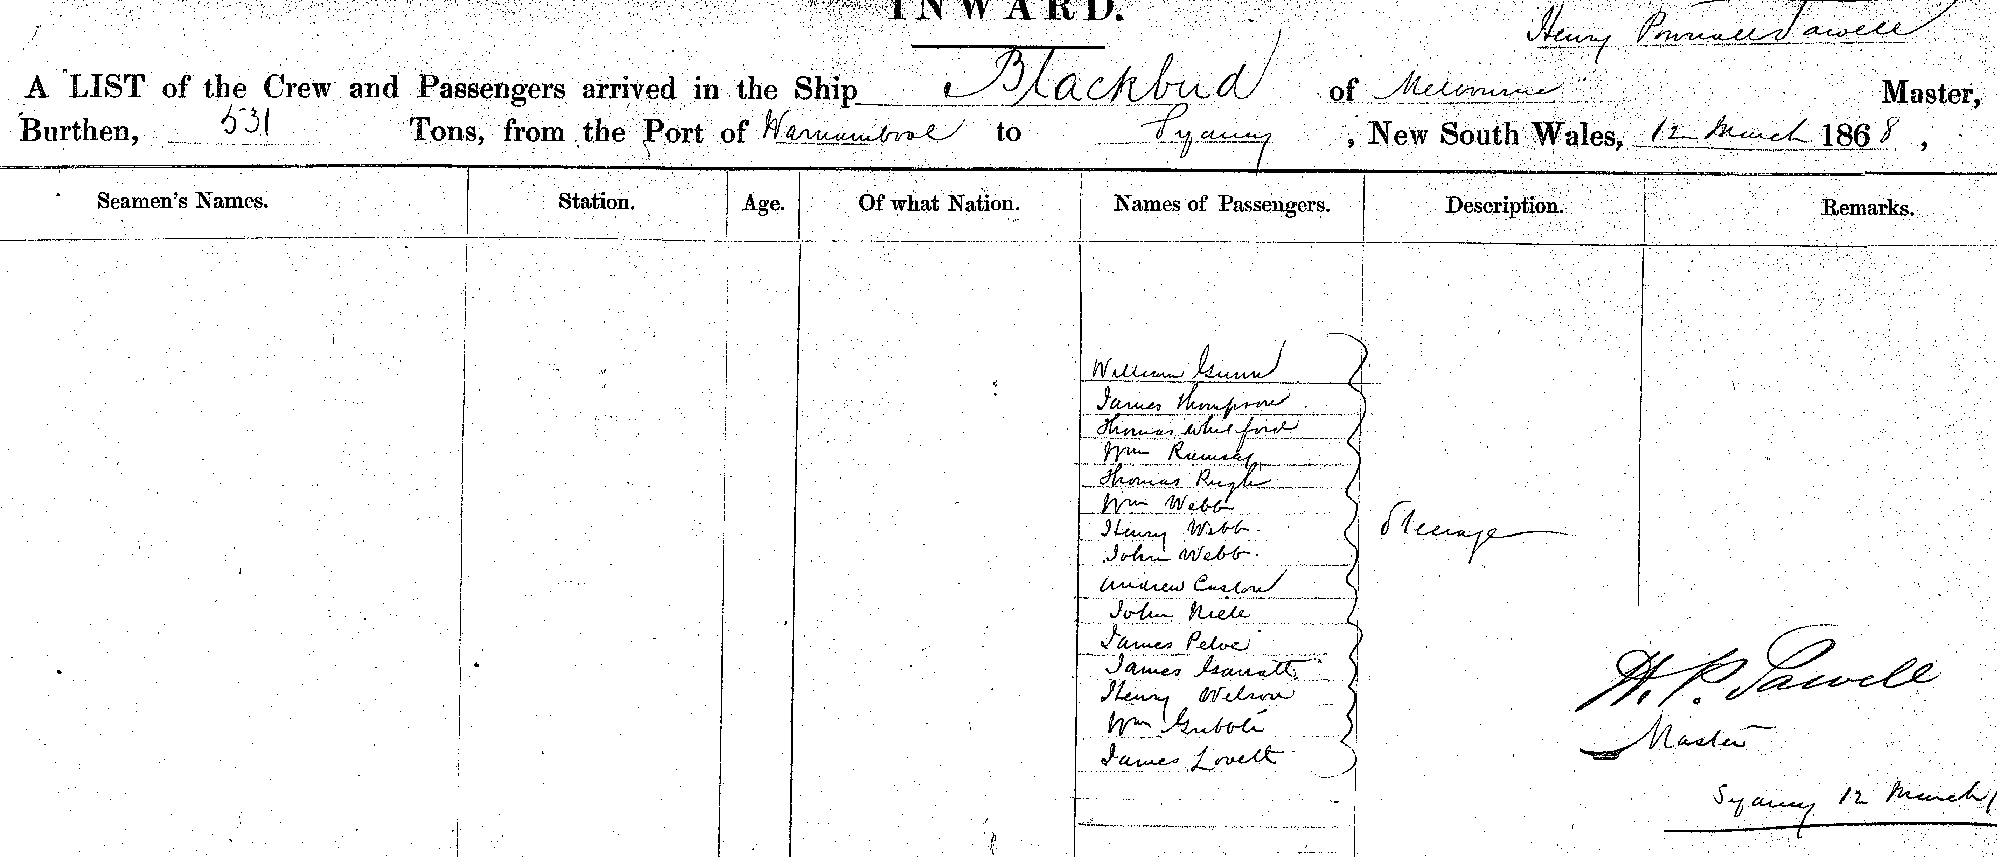 INWARD.
Henry Pownall Sawell
A LIST of the Crew and Passengers arrived in the Ship Blackbird of Melbourne Master,
Burthen, 531 Tons, from the Port of Warnambool to Sydney, New South Wales, 12 March 1868,
Seamen's Names. Station. Age. Of what Nation. Names of Passengers. Description. Remarks.
William Gunn
James Thompson
Thomas
Wm Ramsay
Thomas
Wm Webb
Henry Webb
Steerage
John Webb
Andrew
John
James
James Garratt
H. P. Sawell
Henry Wilson
Wm Gribble
Master
James Lovett
Sydney 12 March